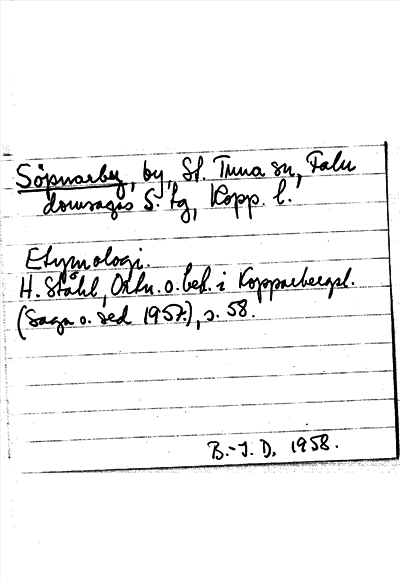 Söpnarby, by, St. Tuna sn, Falu
domsagas S. tg, Kopp. l.
Etymologi.
H. Ståhl, Ortn. o. beb. i Kopparbergsl.
(Saga o. sed 1957), s. 58.
B.-J. D. 1958.